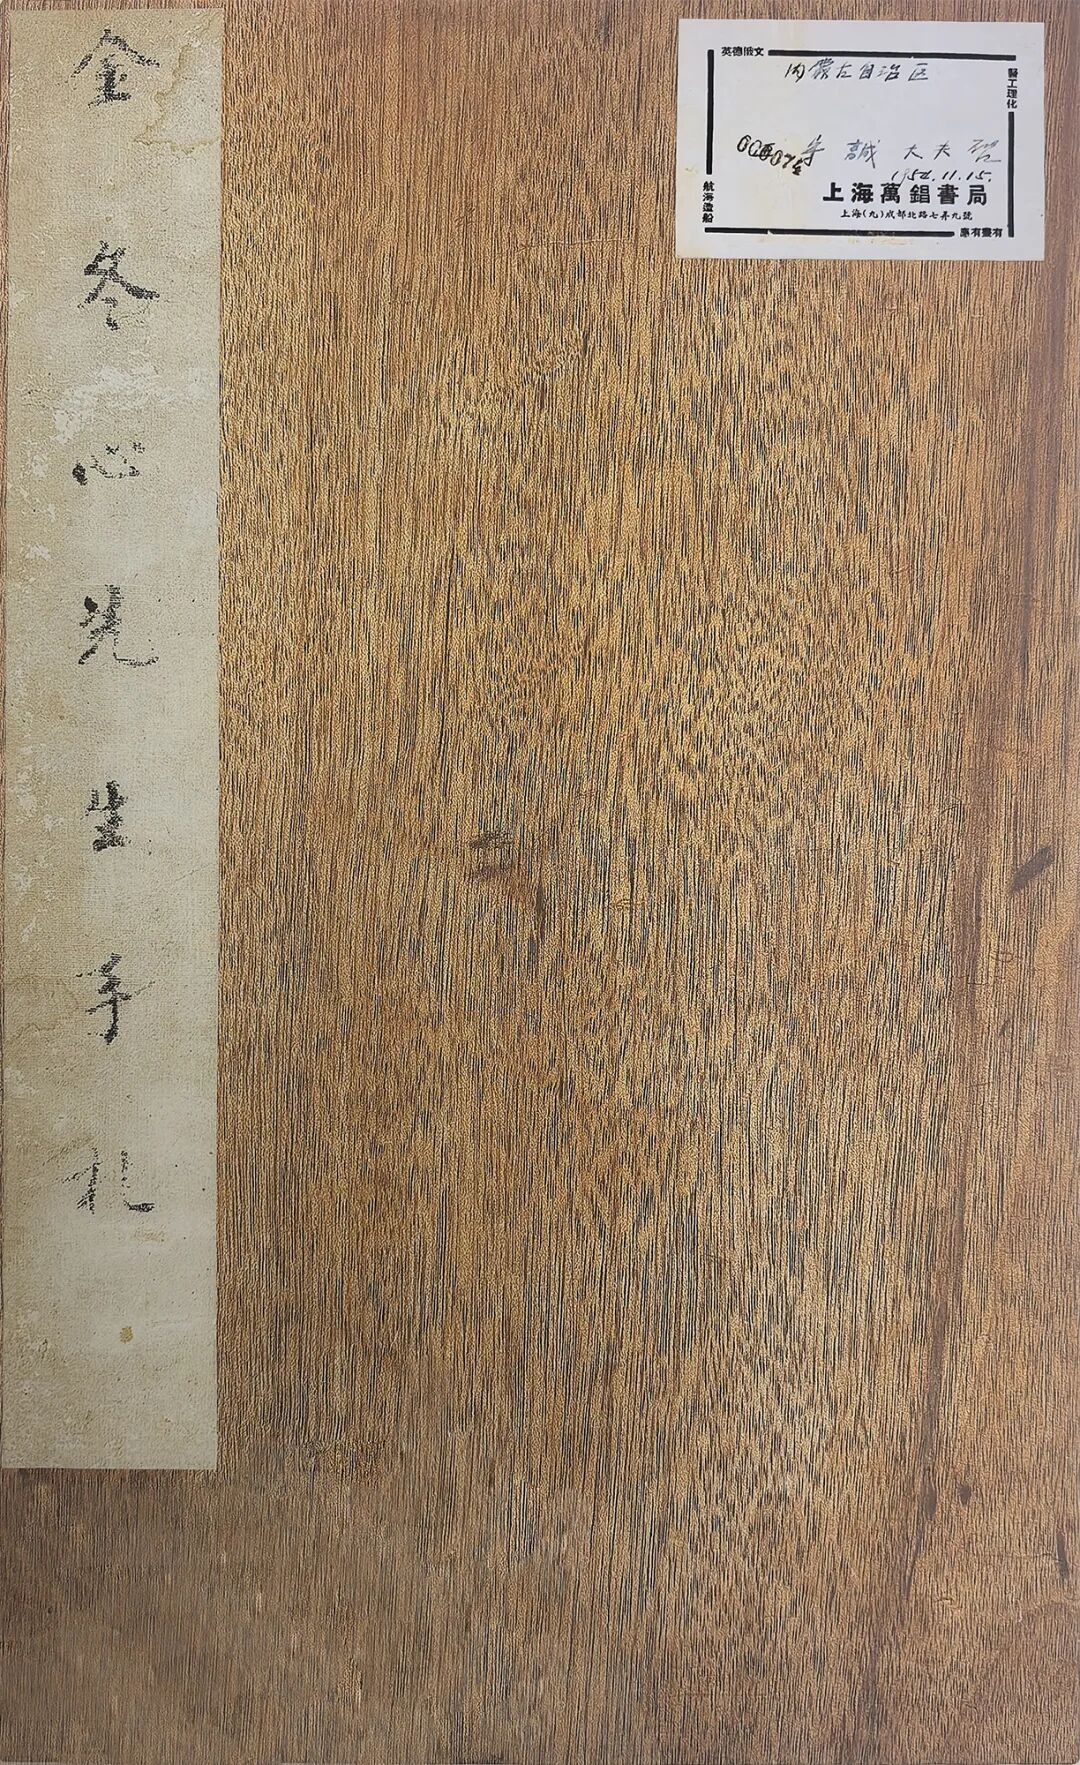 金冬心先生手札
英德俄文
内蒙古自治区
醫工理化
誠大夫
1954.11.15.
上海萬錩書局
航海造船
上海(九)成都北路七弄九號
有盡有應